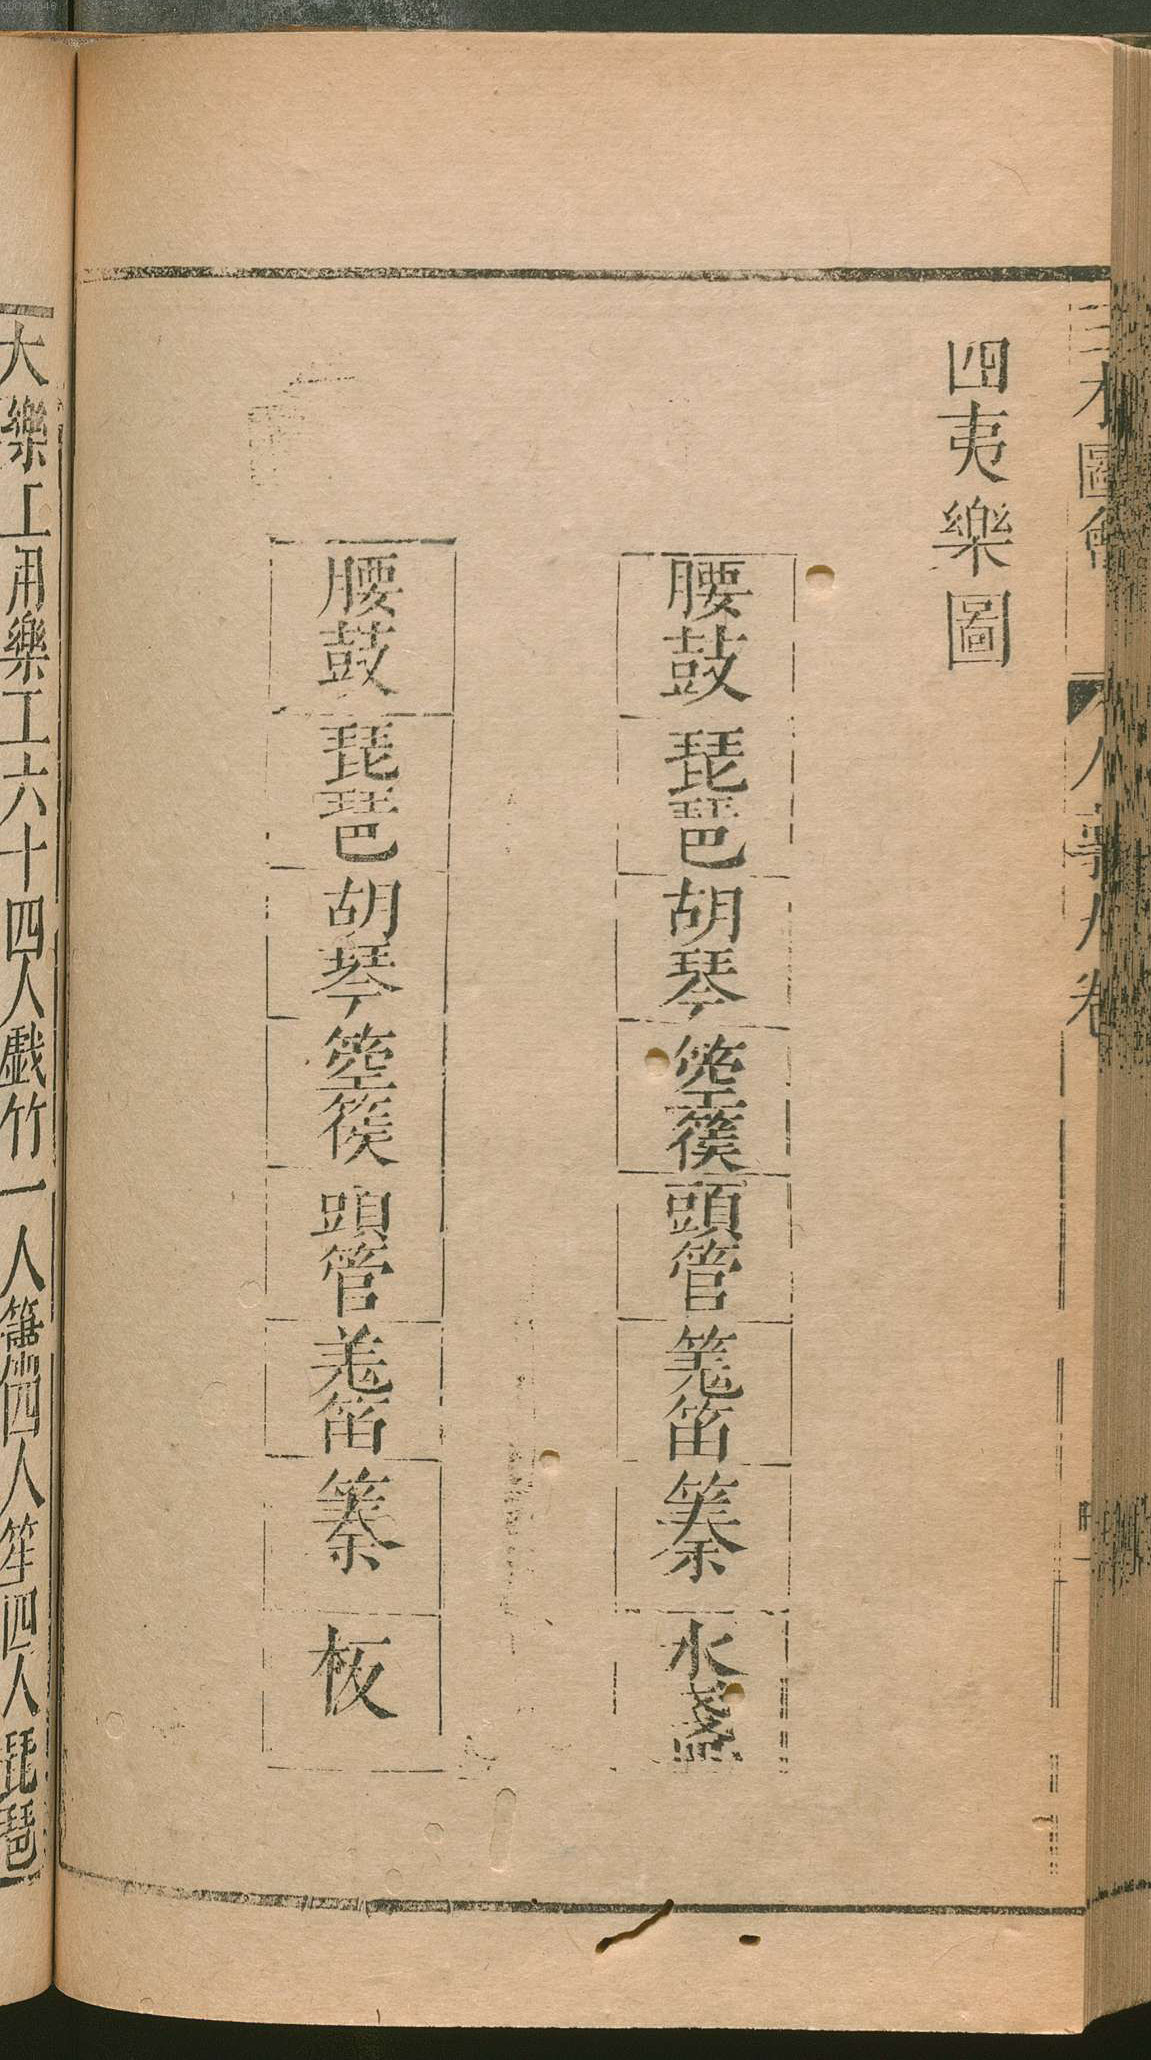 三才圖會 人事八卷
四夷樂圖
腰鼓 琵琶 胡琴 箜篌 頭管 羗笛 篥 水盞
腰鼓 琵琶 胡琴 箜篌 頭管 羗笛 篥 板
大樂工用樂工六十四人戯竹一人簫四人笙四人琵琶